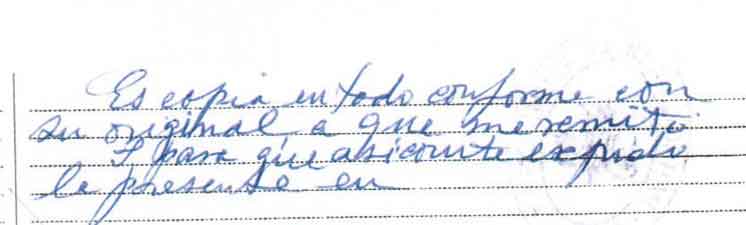 Es copia en todo conforme con
su original a que me remito
Y para que asi conste expido
la presente en